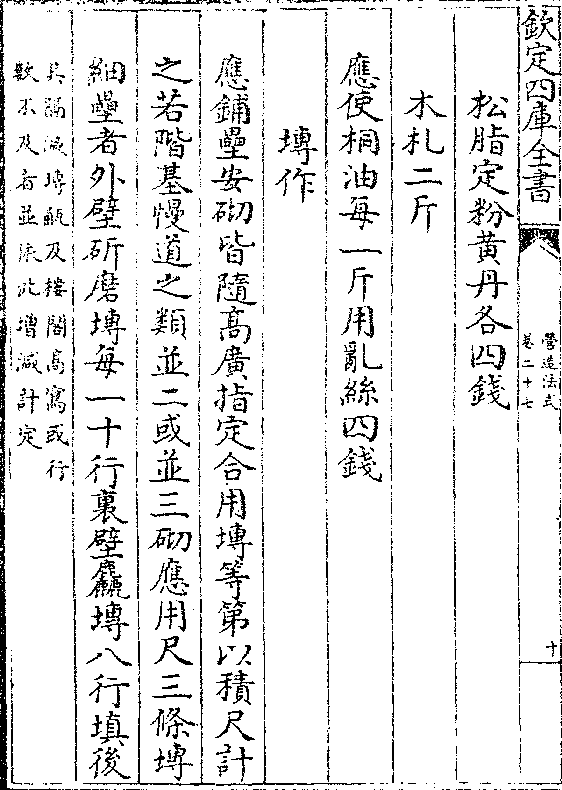 欽定四庫全書
營造法式
卷二十七
十
松脂定粉黃丹各四錢
木札二斤
應使桐油每一斤用亂絲四錢
塼作
應鋪壘安砌皆隨高廣指定合用塼等第以積尺計
之若階基慢道之類並二或並三砌應用尺三條塼
細壘者外壁斫磨塼每一十行裏壁麤塼八行填後
其隔減塼甋及樓閣高窵或行
數不及者並依此增減計定